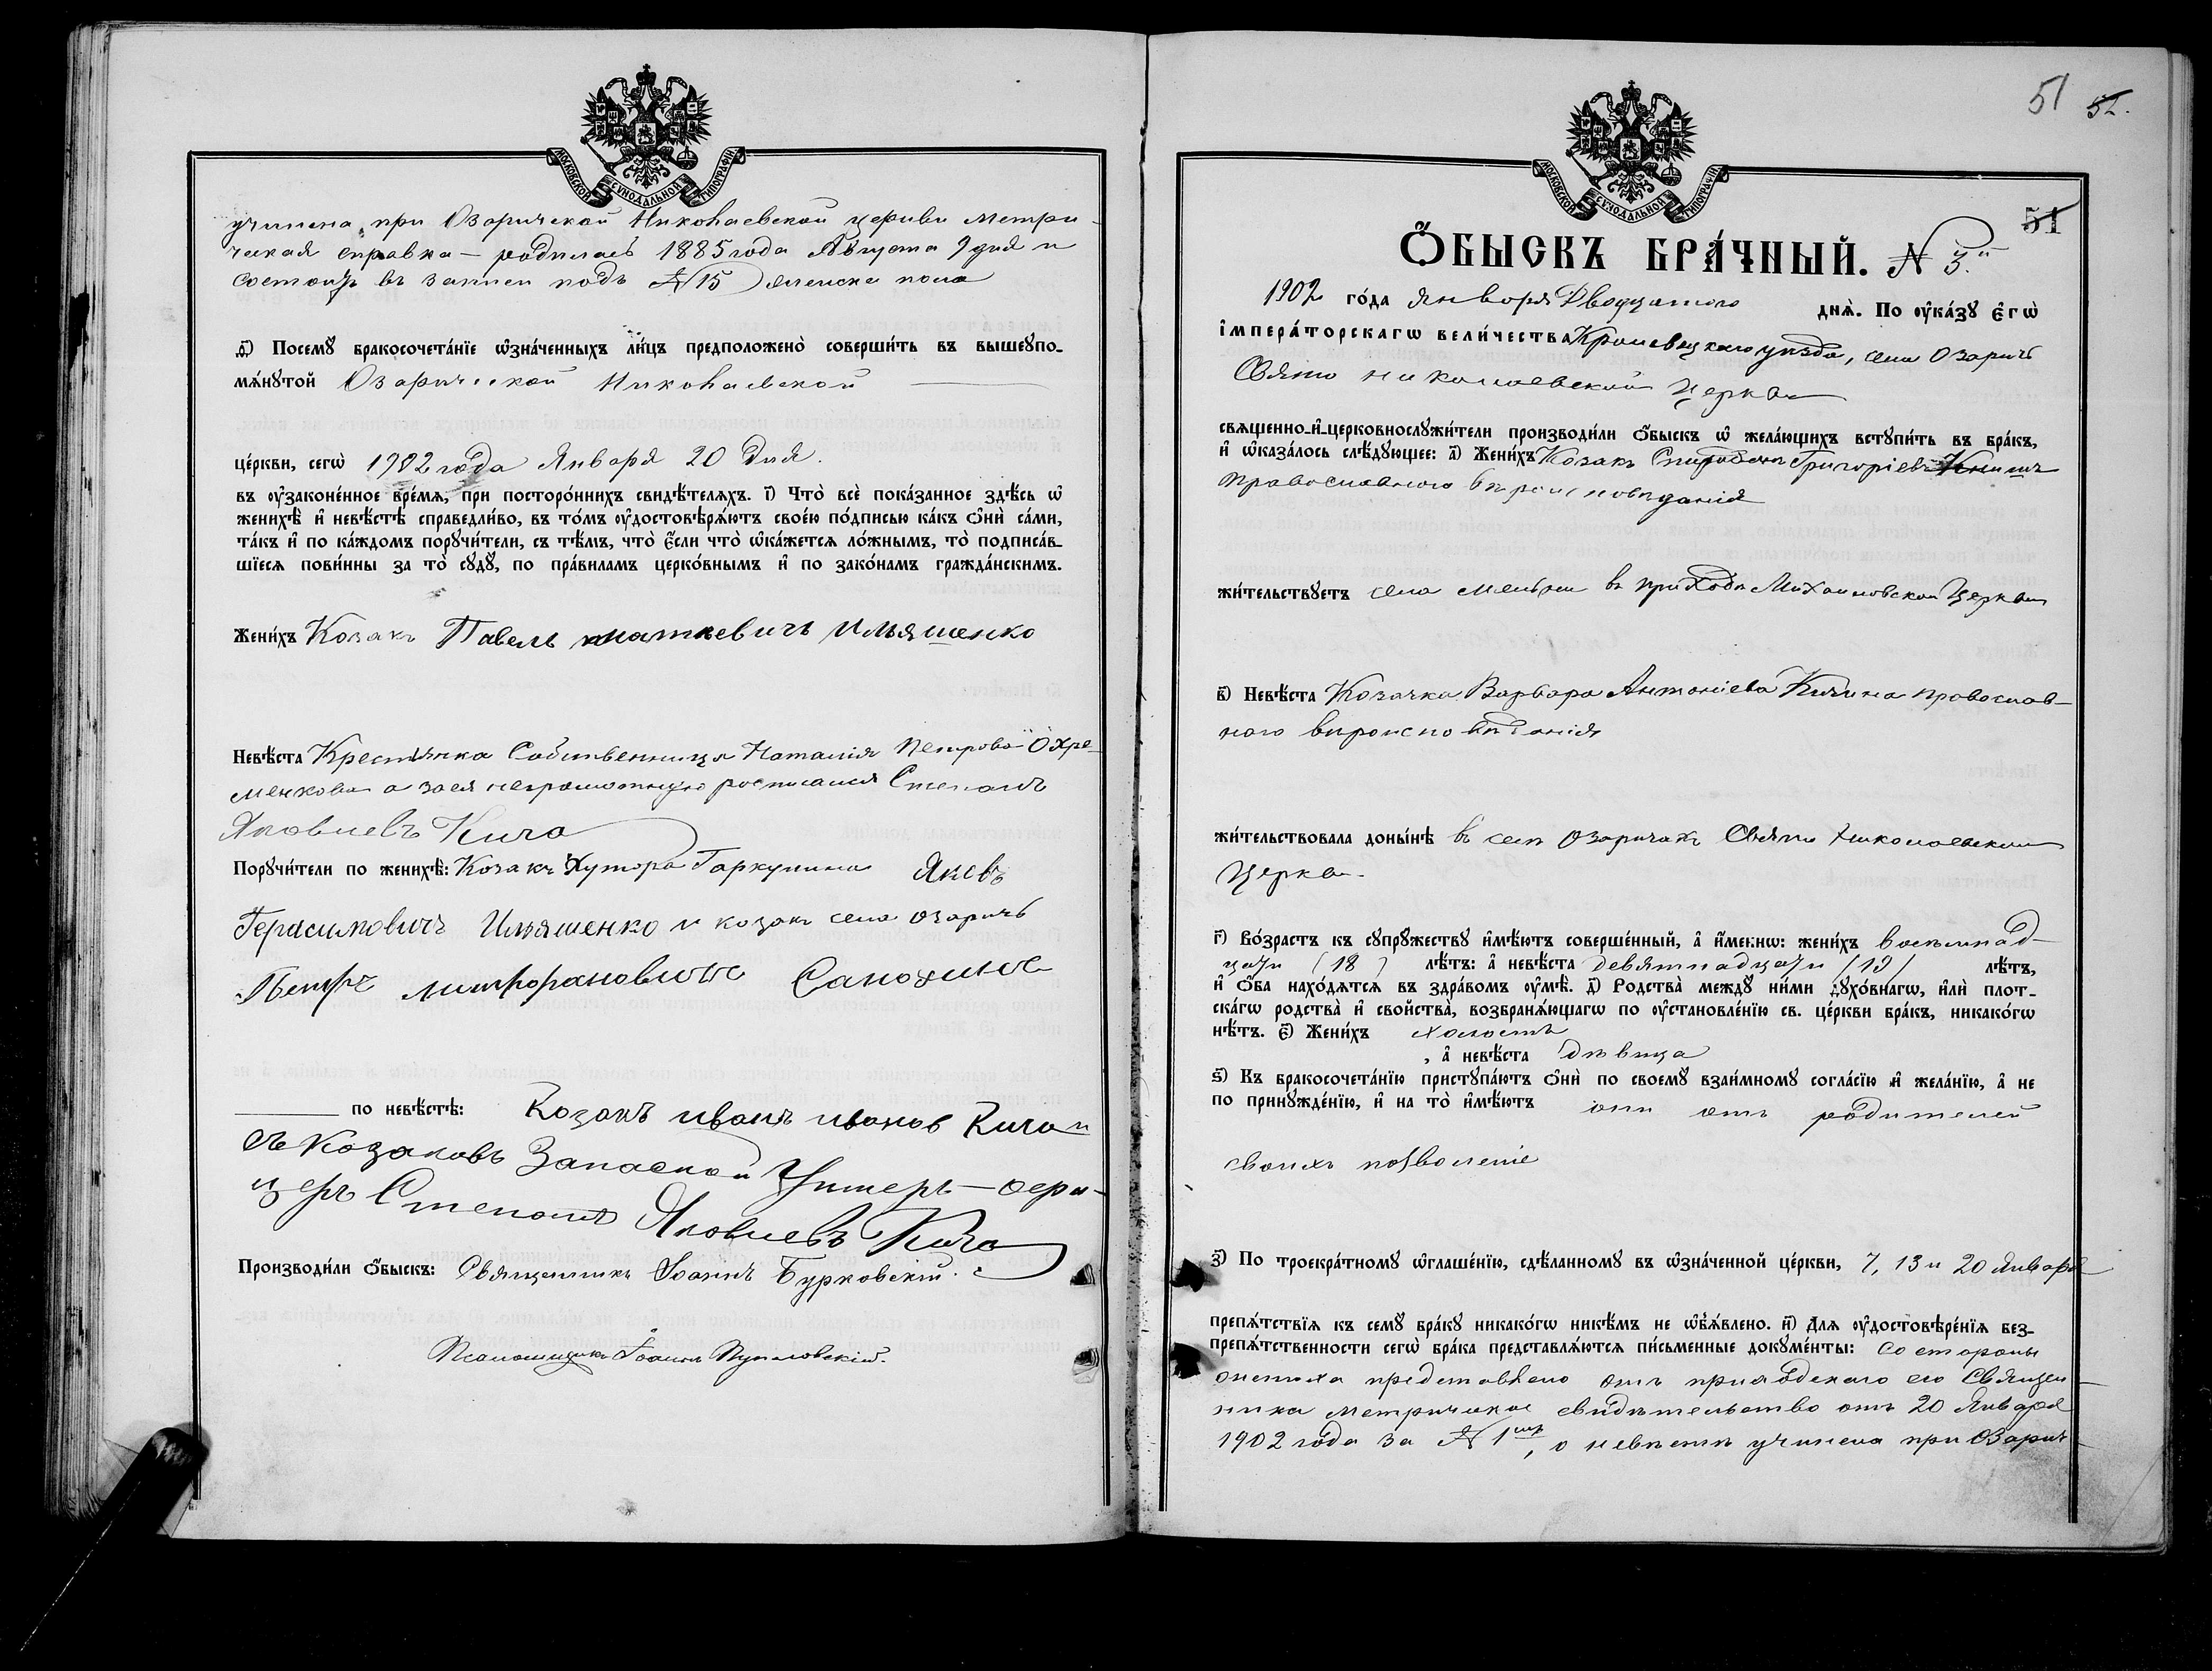 МОСКОВСКОЙ СУНОДАЛЬНОЙ ТИПОГРАФІИ
учинена при Озаричской Николаевской церкви метри-
ческая справка — родилась 1885 года Августа 9 дня и
состоитъ въ записи подъ № 15 женска пола
ѳ҃) Посемꙋ̀ бракосочета́нїе ѡ҆зна́ченныхъ ли́цъ предположено̀ соверши́ть въ вышеꙋпо-
мѧ́нꙋтой Озаричской Николаевской
це́ркви, сегѡ̀ 1902 года Января 20 дня.
въ ᲂу҆зако́ненное вре́мѧ, при посторо́ннихъ свидѣ́телѧхъ. і҃) Что̀ всѐ пока́занное здѣ́сь ѡ҆
женихѣ̀ и҆ невѣ́стѣ справедли́во, въ то́мъ ᲂу҆достовѣрѧ́ютъ свое́ю по́дписью ка́къ ѻ҆нѝ са́ми,
та́къ и҆ по ка́ждомъ порꙋчи́тели, съ тѣ́мъ, что̀ є҆́сли что̀ ѡ҆ка́жетсѧ ло́жнымъ, то̀ подписа́в-
шїесѧ пови́нны за то̀ сꙋдꙋ̀, по пра́виламъ церко́внымъ и҆ по зако́намъ гражда́нскимъ.
Жени́хъ Козакъ Павелъ Матвевичъ Ильяшенко
Невѣ́ста Крестьянка Собственница Наталія Петрова Охре-
менкова а за ея неграмотную росписался Степанъ
Яковлевъ Кича
Порꙋчи́тели по женихѣ̀: Козакъ Хутора Гаркушина Яковъ
Герасимовичъ Ильяшенко и козакъ села Озаричъ
Петръ Митрофановичъ Сапохинъ
по невѣ́стѣ: Козакъ иванъ иванов Кича и
съ Козаковъ Запасной Унтеръ-офи-
церъ Степанъ Яковлевъ Кича
Производи́ли ѻ҆́быскъ: Священникъ Іоаннъ Бурковскій.
Псаломщикъ Іоаннъ
51 52.
МОСКОВСКОЙ СУНОДАЛЬНОЙ ТИПОГРАФІИ
51
Ѻ҆́БЫСКЪ БРА́ЧНЫЙ. № 3.й
1902 го́да января Двадцатого днѧ̀. По ᲂу҆ка́зꙋ є҆гѡ̀
і҆мпера́торскагѡ вели́чества Кролевецкаго уѣзда, села Озаричъ
Свято Николаевской Церкви
свѧщенно-и҆-церковнослꙋжи́тели производи́ли ѻ҆́быскъ ѡ҆ жела́ющихъ встꙋпи́ть въ бра́къ,
и҆ ѡ҆каза́лось слѣ́дꙋющее: а҃) Жени́хъ Козакъ Спиридонъ Григоріевъ
Православного вѣроисповѣданія
жи́тельствꙋетъ села въ приходѣ Михаиловской Церкви
в҃) Невѣ́ста Козачка Варвара Антоніева Кичина православ-
ного вѣроисповѣданія
жи́тельствовала доны́нѣ въ селѣ Озаричахъ Свято Николаевской
Церкви.
г҃) Во́зрастъ къ сꙋпрꙋ́жествꙋ и҆мѣ́ютъ соверше́нный, а҆ и҆́меннѡ: жени́хъ восемнад-
цати (18) лѣ́тъ: а҆ невѣ́ста девятнадцати (19) лѣ́тъ,
и҆ ѻ҆́ба нахо́дѧтсѧ въ здра́вомъ ᲂу҆мѣ̀. д҃) Родства̀ междꙋ̀ ни́ми дꙋхо́внагѡ, и҆лѝ плот-
ска́гѡ родства̀ и҆ сво́йства̀, возбранѧ́ющагѡ по ᲂу҆становле́нїю св. це́ркви бра́къ, никако́гѡ
нѣ́тъ. є҃) Жени́хъ холостъ
, а҆ невѣ́ста дѣвица
ѕ҃) Къ бракосочета́нїю пристꙋпа́ютъ ѻ҆нѝ по своемꙋ̀ взаи́мномꙋ согла́сїю и҆ жела́нїю, а҆ не
по принꙋжде́нїю, и҆ на то̀ и҆мѣ́ютъ они отъ родителей
своихъ позволеніе
з҃) По троекра́тномꙋ ѡ҆глаше́нїю, сдѣ́ланномꙋ въ ѡ҆зна́ченной це́ркви, 7, 13 и 20 Января
препѧ́тствїѧ къ семꙋ̀ бра́кꙋ никако́гѡ никѣ́мъ не ѡ҆б̾ѧ́влено. и҃) Длѧ ᲂу҆достовѣре́нїѧ без-
препѧ́тственности сегѡ̀ бра́ка представлѧ́ютсѧ пи́сьменные докꙋме́нты: со стороны
жениха представлено отъ приходскаго его Священ-
ника метрическое свидѣтельство отъ 20 Января
1902 года за № 1мъ, о невѣстѣ учинена при Озарич-